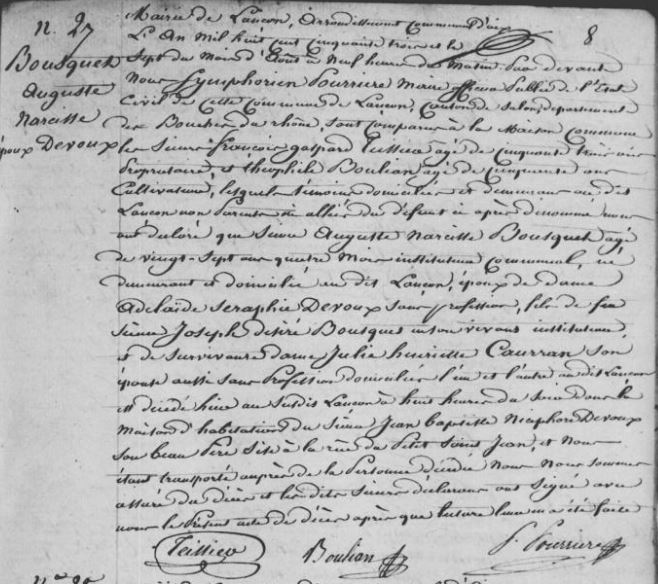 n. 27
Bousquet
Auguste
Narcisse
époux Devoux
8
Mairie de Lançon, Arrondissement Communal d'aix
L'An Mil huit cent Cinquante trois et le
Sept du Mois d'Août à Neuf heures du Matin, Par devant
Nous Symphorien Pourriere Maire officier Public de l'Etat
Civil de Cette Commune de Lançon, Canton de Salon, département
des Bouches du rhône, sont comparus à la Maison Commune
les Sieurs françois gaspard Teissier agé de cinquante trois ans
Propriétaire, et théophile Boulian agé de Cinquante ans
Cultivateur, lesquels témoins domiciliés et demeurans au dit
Lançon non Parents ni alliés du défunt ci après dénommé nous
ont déclaré que Sieur Auguste Narcisse Bousquet agé
de vingt-Sept ans quatre Mois instituteur Communal, né
demeurant et domicilié au dit Lançon, époux de dame
Adelaïde Seraphie Devoux sans profession, fils de feu
Sieur Joseph désiré Bousquet en son vivant instituteur,
et de Survivante dame Julie henriette Caurran son
épouse aussi sans Profession domiciliés l'un et l'autre au dit Lançon
est décédé hier au Susdit Lançon à huit heures du Soir dans la
Maison d'habitation du Sieur Jean baptiste Nicephore Devoux
son beau Père Sise à la rue du Petit Saint Jean, et Nous
étant transporté auprès de la Personne décédée Nous Nous sommes
assuré du décès et les dits Sieurs déclarans ont Signé avec
nous le Présent acte de décès après que lecture leur en a été faite
Teissier Boulian S. Pourriere